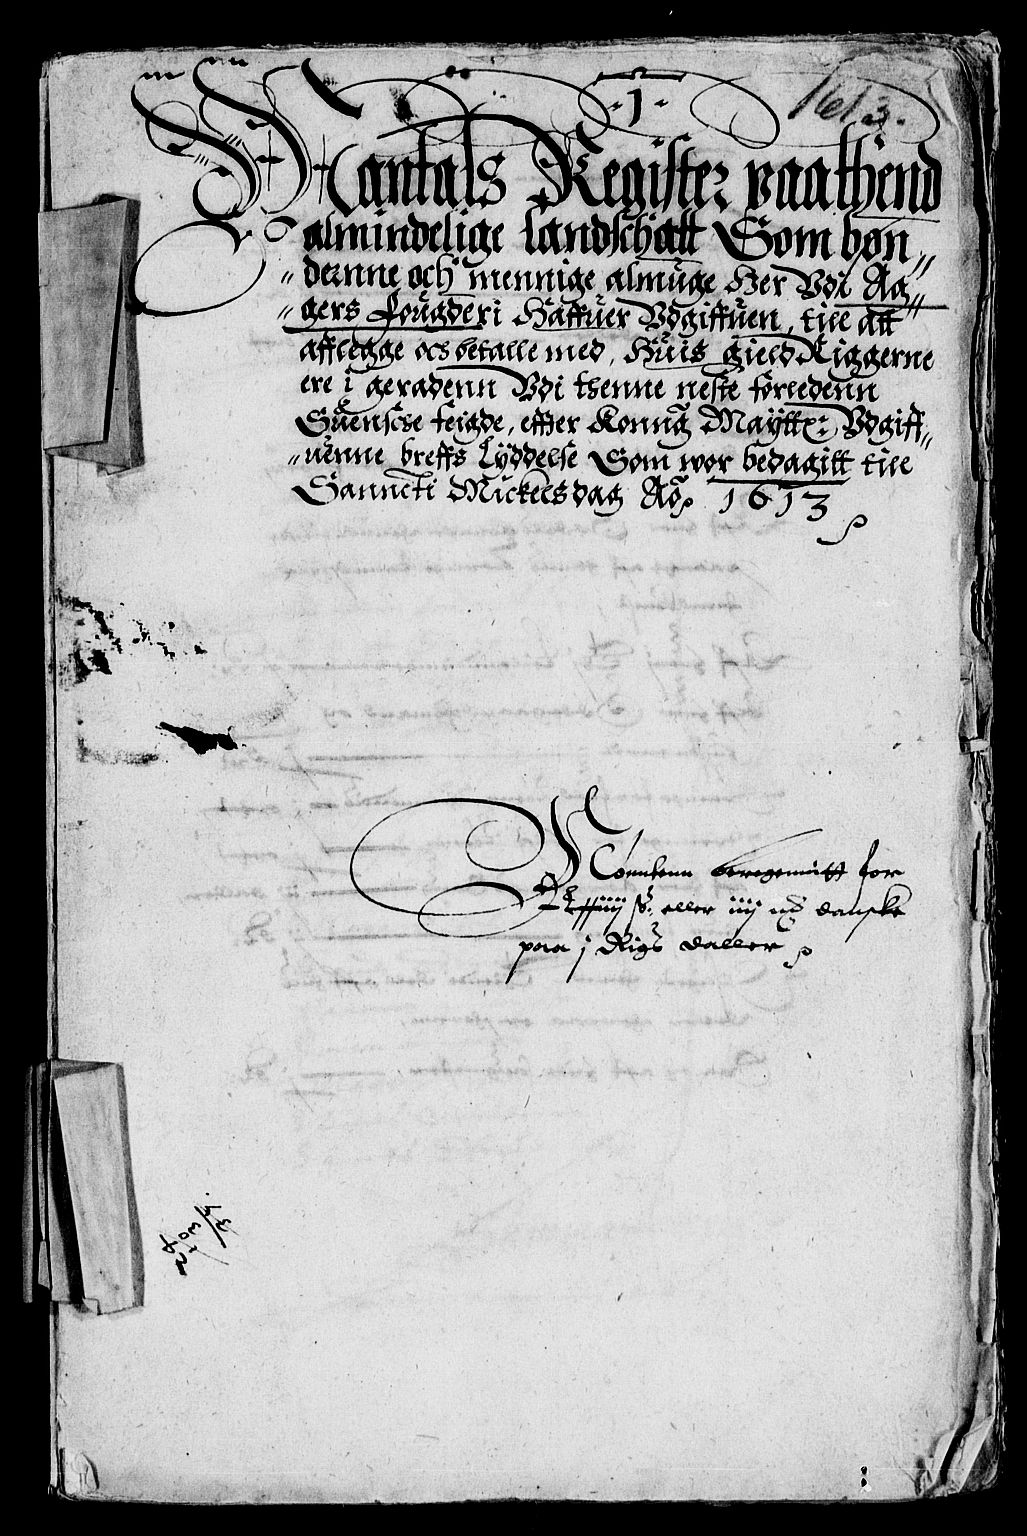 ·1·
1613.
Mantals Register paa thend
almindelige landschatt Som bøn„
„dernne och mennige almuge Her Vdi Ag„
„gers Fougderi Haffuer Vdgiffuen, till att
afflegge och betalle med, Huis gield Riggerne
ere i geradenn Vdi thenne neste forledenn
Suensche feigde, effter Konng Maÿttz: Vdgiff„
„uenne breffs Lÿddelse Som wor bedagitt till
Sanncti Mickels dag Ao 1613
Mønntenn beregenuitt for
iiij ß. eller iiij mk danske
paa j Rigs daller